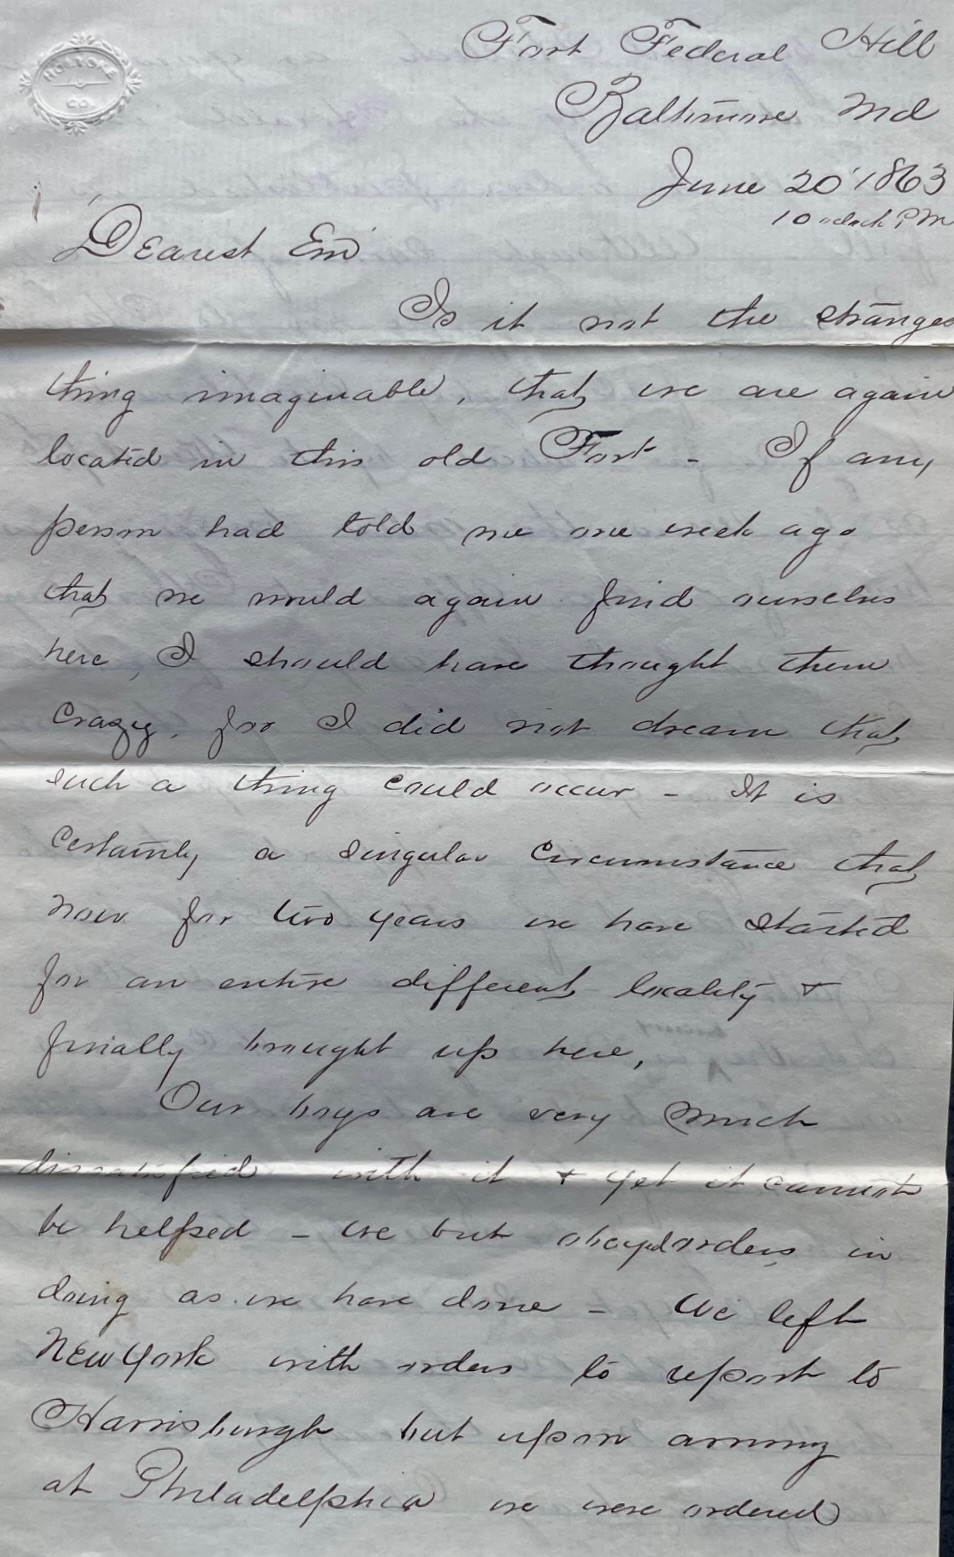 HOLYOKE
CO.
Fort Federal Hill
Baltimore Md
June 20' 1863
10 oclock PM
Dearest Em
Is it not the stranges
thing imaginable, that we are again
located in this old Fort - If any
person had told me one week ago
that we would again find ourselves
here, I should have thought them
crazy, for I did not dream that
such a thing could occur - It is
certainly a singular circumstance that
now for two years we have started
for an entire different locality &
finally brought up here,
Our boys are very much
dissatisfied with it & yet it cannot
be helped - we but obeyed orders in
doing as we have done - We left
New York with orders to report to
Harrisburgh but upon arriving
at Philadelphia we were ordered